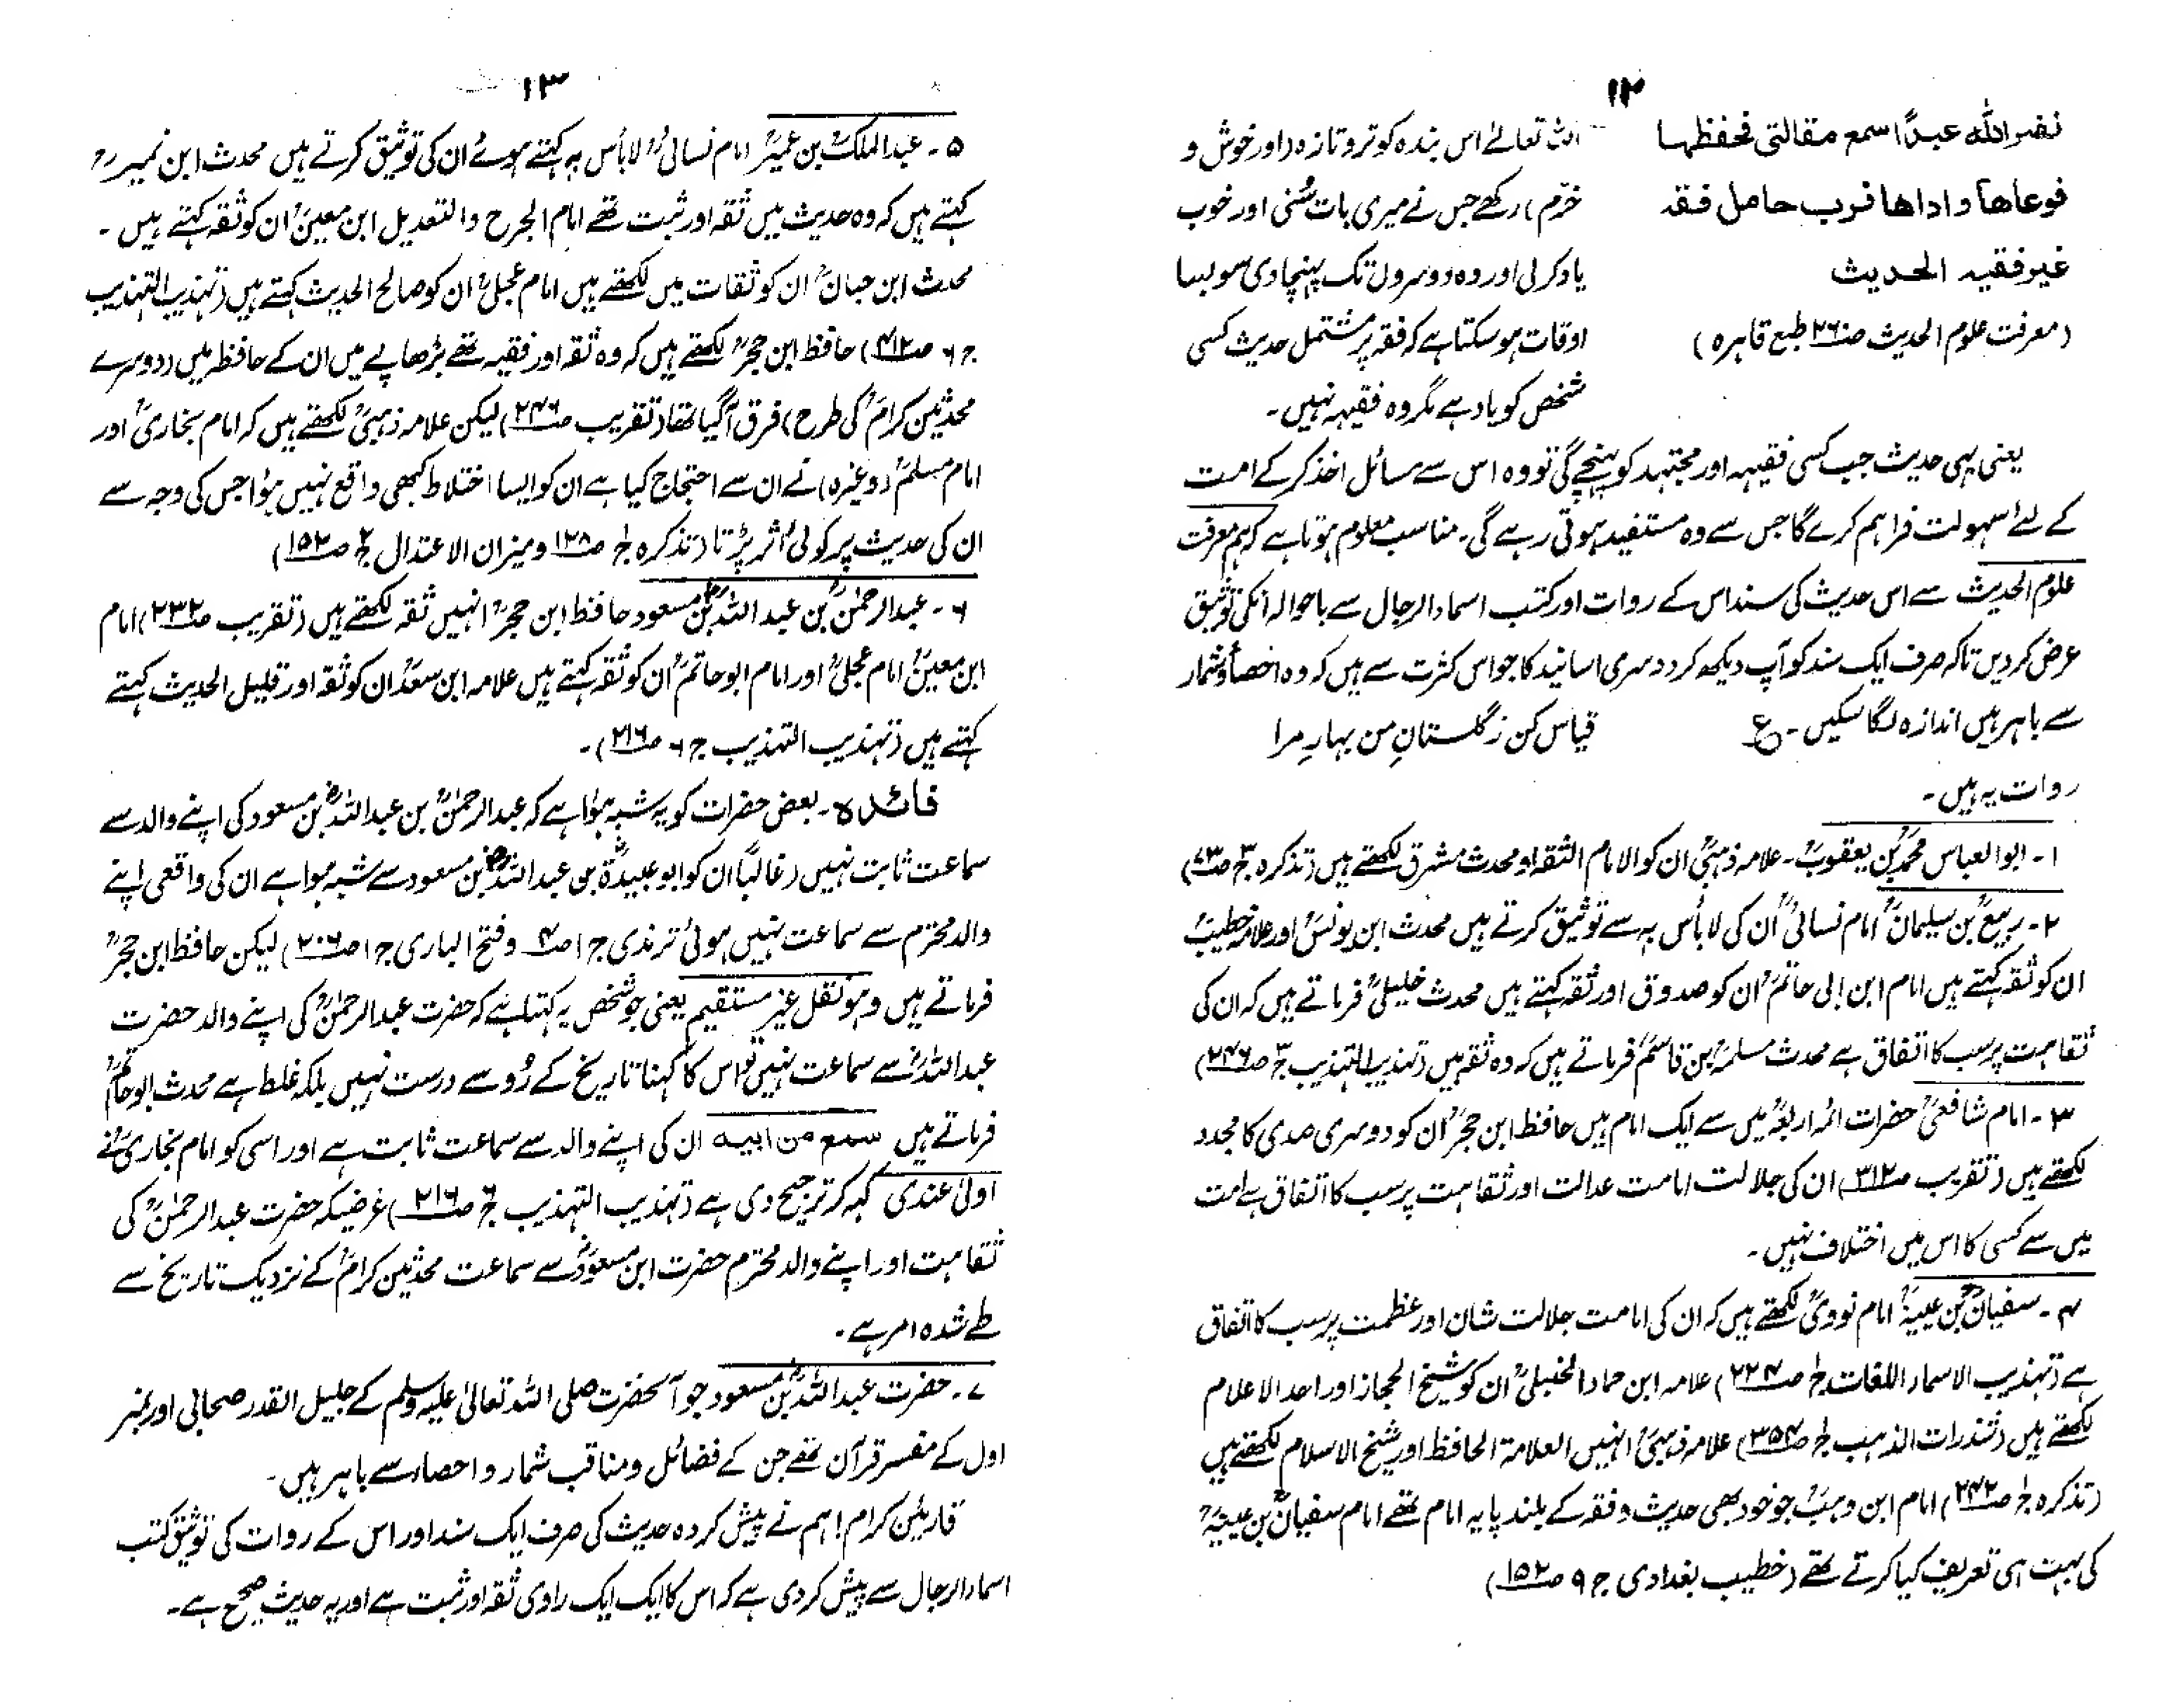 ۱۲
نضر اللہ عبدًا سمع مقالتی فحفظہا
فوعاھا و اداھا فرب حامل فقہ
غیر فقیہ الحدیث
(معرفت علوم الحدیث صـ۲۶۰ طبع قاہرہ)
اللہ تعالےٰ اس بندہ کو تروتازہ (اور خوش و
خرّم) رکھے جس نے میری بات سُنی اور خوب
یاد کر لی اور وہ دوسروں تک پہنچا دی سو بسا
اوقات ہو سکتا ہے کہ فقہ پر مشتمل حدیث کسی
شخص کو یاد ہے مگر وہ فقیہہ نہیں۔
یعنی یہی حدیث جب کسی فقیہہ اور مجتہد کو پہنچے گی تو وہ اس سے مسائل اخذ کر کے امت
کے لئے سہولت فراہم کرے گا جس سے وہ مستفید ہوتی رہے گی۔ مناسب معلوم ہوتا ہے کہ ہم معرفت
علوم الحدیث سے اس حدیث کی سند اس کے روات اور کتب اسماء الرجال سے باحوالہ انکی توثیق
عرض کر دیں تاکہ صرف ایک سند کو آپ دیکھ کر دوسری اسانید کا جو اس کثرت سے ہیں کہ وہ احصأ و شمار
سے باہر ہیں اندازہ لگا سکیں۔ ع قیاس کن ز گلستانِ من بہارِ مرا
روات یہ ہیں۔
۱۔ ابوالعباس محمدؒ بن یعقوبؒ۔ علامہ ذہبیؒ ان کو الامام الثقہ او محدث مشرق لکھتے ہیں (تذکرہ ج۳ صـ۷۳)
۲۔ ربیعؒ بن سلیمانؒ امام نسائیؒ اُن کی لا بأس بہ سے توثیق کرتے ہیں محدث ابن یونسؒ اور علامہ خطیبؒ
ان کو ثقہ کہتے ہیں امام ابن ابی حاتمؒ ان کو صدوق اور ثقہ کہتے ہیں محدث خلیلیؒ فرماتے ہیں کہ ان کی
ثقاہت پر سب کا اتفاق ہے محدث مسلمہؒ بن قاسمؒ فرماتے ہیں کہ وہ ثقہ ہیں (تہذیب التہذیب ج۳ صـ۲۴۶)
۳۔ امام شافعیؒ حضرات ائمہ اربعہؒ میں سے ایک امام ہیں حافظ ابن حجرؒ ان کو دوسری صدی کا مجدد
لکھتے ہیں (تقریب صـ۳۱۲) ان کی جلالت امامت عدالت اور ثقاہت پر سب کا اتفاق ہے امت
میں سے کسی کا اس میں اختلاف نہیں۔
۴۔ سفیانؒ بن عیینہؒ امام نوویؒ لکھتے ہیں کہ ان کی امامت جلالت شان اور عظمت پر سب کا اتفاق
ہے (تہذیب الاسماء اللغات ج۱ صـ۲۲۴) علامہ ابن حماد الحنبلیؒ ان کو شیخ الحجاز اور احد الاعلام
لکھتے ہیں (شذرات الذہب ج۱ صـ۳۵۴) علامہ ذہبیؒ انہیں العلامۃ الحافظ اور شیخ الاسلام لکھتے ہیں
(تذکرہ ج۱ صـ۲۴۲) امام ابن وہبؒ جو خود بھی حدیث و فقہ کے بلند پایہ امام تھے امام سفیانؒ بن عیینہؒ
کی بہت ہی تعریف کیا کرتے تھے (خطیب بغدادی ج ۹ صـ۱۵۲)
۱۳
۵۔ عبدالملکؒ بن عمیرؒ امام نسائیؒ لا بأس بہ کہتے ہوئے ان کی توثیق کرتے ہیں محدث ابن نمیرؒ
کہتے ہیں کہ وہ حدیث میں ثقہ اور ثبت تھے امام الجرح والتعدیل ابن معینؒ ان کو ثقہ کہتے ہیں۔
محدث ابن حبانؒ ان کو ثقات میں لکھتے ہیں امام عجلیؒ ان کو صالح الحدیث کہتے ہیں (تہذیب التہذیب
ج ۶ صـ۴۱۲) حافظ ابن حجرؒ لکھتے ہیں کہ وہ ثقہ اور فقیہ تھے بڑھاپے میں ان کے حافظہ میں (دوسرے
محدثین کرامؒ کی طرح) فرق آگیا تھا (تقریب صـ۲۴۶) لیکن علامہ ذہبیؒ لکھتے ہیں کہ امام بخاریؒ اور
امام مسلمؒ (وغیرہ) نے ان سے احتجاج کیا ہے ان کو ایسا اختلاط کبھی واقع نہیں ہوا جس کی وجہ سے
ان کی حدیث پر کوئی اثر پڑتا (تذکرہ ج۱ صـ۱۲۸ و میزان الاعتدال ج۲ صـ۱۵۲)
۶۔ عبدالرحمٰنؒ بن عبداللہؓ بن مسعود حافظ ابن حجرؒ انہیں ثقہ لکھتے ہیں (تقریب صـ۲۳۲) امام
ابن معینؒ امام عجلیؒ اور امام ابوحاتمؒ ان کو ثقہ کہتے ہیں علامہ ابن سعدؒ ان کو ثقہ اور قلیل الحدیث کہتے
کہتے ہیں (تہذیب التہذیب ج ۶ صـ۲۱۶)۔
فائدہ۔ بعض حضرات کو یہ شبہ ہوا ہے کہ عبدالرحمٰنؒ بن عبداللہؓ بن مسعود کی اپنے والد سے
سماعت ثابت نہیں (غالباً ان کو ابو عبیدہؒ بن عبداللہؓ بن مسعود سے شبہ ہوا ہے ان کی واقعی اپنے
والد محترم سے سماعت نہیں ہوئی ترمذی ج ۱ صـ۴ و فتح الباری ج ۱ صـ۲۰۶) لیکن حافظ ابن حجرؒ
فرماتے ہیں وہو نقل غیر مستقیم یعنی جو شخص یہ کہتا ہے کہ حضرت عبدالرحمٰنؒ کی اپنے والد حضرت
عبداللہؓ سے سماعت نہیں تو اس کا کہنا تاریخ کے رُو سے درست نہیں بلکہ غلط ہے محدث ابوحاتمؒ
فرماتے ہیں سمع من ابیہ ان کی اپنے والد سے سماعت ثابت ہے اور اسی کو امام بخاریؒ نے
اولیٰ عندی کہہ کر ترجیح دی ہے (تہذیب التہذیب ج۶ صـ۲۱۶) غرضیکہ حضرت عبدالرحمٰنؒ کی
ثقاہت اور اپنے والد محترم حضرت ابن مسعودؓ سے سماعت محدثین کرامؒ کے نزدیک تاریخ سے
طے شدہ امر ہے۔
۷۔ حضرت عبداللہؓ بن مسعود جو آنحضرت صلی اللہ تعالیٰ علیہ وسلم کے جلیل القدر صحابی اور نمبر
اول کے مفسر قرآن تھے جن کے فضائل و مناقب شمار و احصاء سے باہر ہیں۔
قارئین کرام! ہم نے پیش کردہ حدیث کی صرف ایک سند اور اس کے روات کی توثیق کتب
اسماء الرجال سے پیش کر دی ہے کہ اس کا ایک ایک راوی ثقہ اور ثبت ہے اور یہ حدیث صحیح ہے۔